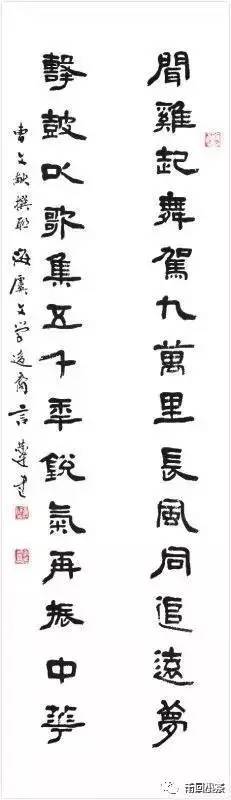 聞雞起舞駕九萬里長風同追遠夢
擊鼓以歌集五千年銳氣再振中華
曹文献撰联 海虞文学裔言